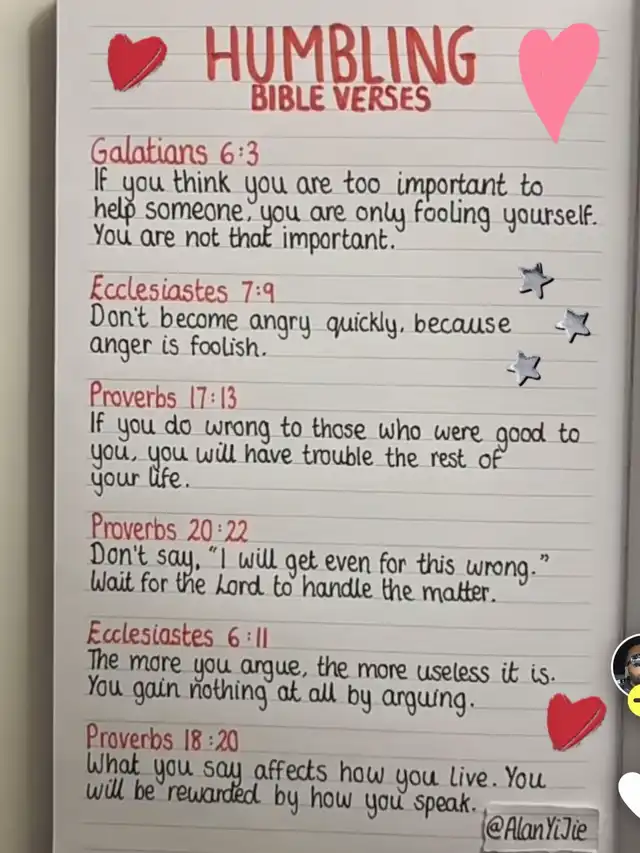 HUMBLING
BIBLE VERSES
Galatians 6:3
If you think you are too important to
help someone, you are only fooling yourself.
You are not that important.
Ecclesiastes 7:9
Don't become angry quickly, because
anger is foolish.
Proverbs 17:13
If you do wrong to those who were good to
you, you will have trouble the rest of
your life.
Proverbs 20:22
Don't say, "I will get even for this wrong."
Wait for the Lord to handle the matter.
Ecclesiastes 6:11
The more you argue, the more useless it is.
You gain nothing at all by arguing.
Proverbs 18:20
What you say affects how you live. You
will be rewarded by how you speak.
@AlanYiJie